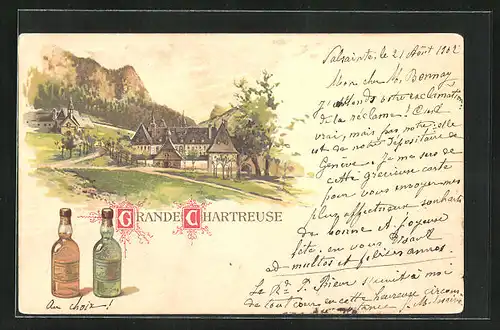 GRANDE CHARTREUSE
Au choix !
Valsainte, le 21 Août 1902
Mon cher M. Bonnay
J'entends votre exclamation
de la réclame ! C'est
vrai, mais pas notre : elle
est du notre Dépositaire de
Genève. Je me sers de
cette gracieuse carte
pour vous envoyer mes
plus affectueux souhaits
de bonne et joyeuse
fête, en vous disant
ad multos et felices annos
Le Rd P. s'unit à moi
de tout cœur en cette heureuse circons
tance